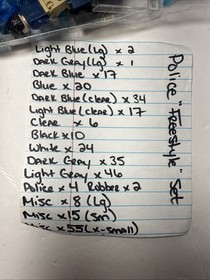 Light Blue (Lg) x 2
Dark Gray (Lg) x 1
Dark Blue x 17
Blue x 20
Dark Blue (clear) x 34
Light Blue (clear) x 17
Clear x 6
Black x 10
White x 24
Dark Gray x 35
Light Gray x 46
Police x 4 Rubber x 2
Misc x 8 (Lg)
Misc x 15 (sm)
Misc x 55 (x-small)
Police "Freestyle" Set